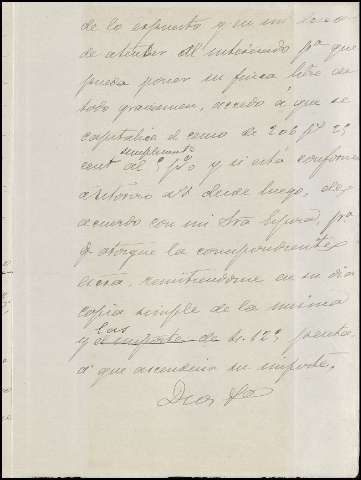 de lo expuesto y en mi deseo
de atender al interesado pª que
pueda poner su finca libre de
todo gravamen, accedo á que se
capitalice el censo de 206 pts 25
simplemente
cent al pº/o y si está conforme
autorizo á V desde luego, de
acuerdo con mi Sra Esposa, pª
q otorgue la correspondiente
escrª, remitiendome en su dia
copia simple de la misma
las
y el importe de
á que ascenderia su importe.
Dios